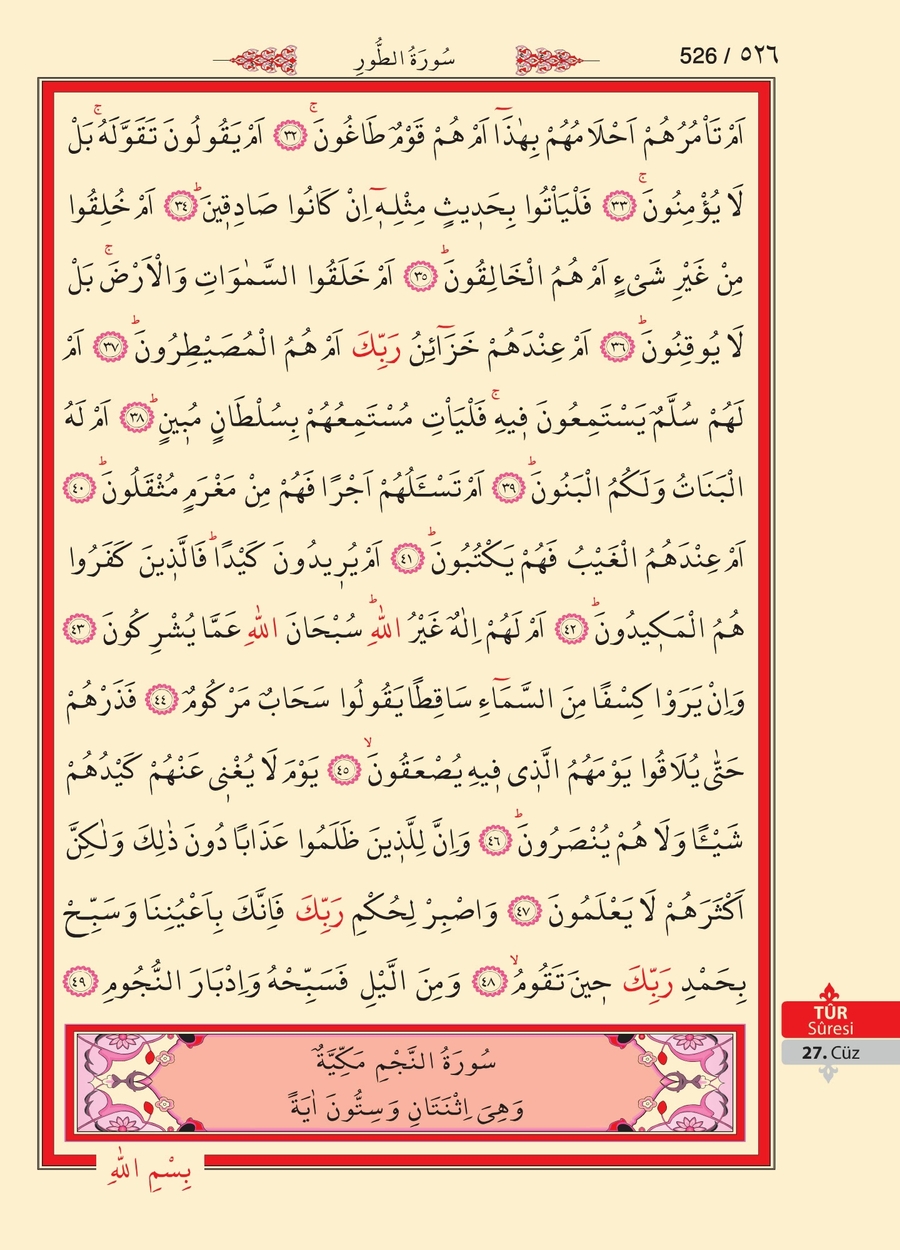 سُورَةُ الطُّورِ
526 / ٥٢٦
اَمْ تَأْمُرُهُمْ اَحْلَامُهُمْ بِهٰذَٓا اَمْ هُمْ قَوْمٌ طَاغُونَۚ ﴿٣٢﴾ اَمْ يَقُولُونَ تَقَوَّلَهُۚ بَلْ
لَا يُؤْمِنُونَۚ ﴿٣٣﴾ فَلْيَأْتُوا بِحَد۪يثٍ مِثْلِه۪ٓ اِنْ كَانُوا صَادِق۪ينَۜ ﴿٣٤﴾ اَمْ خُلِقُوا
مِنْ غَيْرِ شَيْءٍ اَمْ هُمُ الْخَالِقُونَۜ ﴿٣٥﴾ اَمْ خَلَقُوا السَّمٰوَاتِ وَالْاَرْضَۚ بَلْ
لَا يُوقِنُونَۜ ﴿٣٦﴾ اَمْ عِنْدَهُمْ خَزَٓائِنُ رَبِّكَ اَمْ هُمُ الْمُصَيْطِرُونَۜ ﴿٣٧﴾ اَمْ
لَهُمْ سُلَّمٌ يَسْتَمِعُونَ ف۪يهِۚ فَلْيَأْتِ مُسْتَمِعُهُمْ بِسُلْطَانٍ مُب۪ينٍۜ ﴿٣٨﴾ اَمْ لَهُ
الْبَنَاتُ وَلَكُمُ الْبَنُونَۜ ﴿٣٩﴾ اَمْ تَسْـَٔلُهُمْ اَجْرًا فَهُمْ مِنْ مَغْرَمٍ مُثْقَلُونَۜ ﴿٤٠﴾
اَمْ عِنْدَهُمُ الْغَيْبُ فَهُمْ يَكْتُبُونَۜ ﴿٤١﴾ اَمْ يُر۪يدُونَ كَيْدًاۜ فَالَّذ۪ينَ كَفَرُوا
هُمُ الْمَك۪يدُونَۜ ﴿٤٢﴾ اَمْ لَهُمْ اِلٰهٌ غَيْرُ اللّٰهِۜ سُبْحَانَ اللّٰهِ عَمَّا يُشْرِكُونَ ﴿٤٣﴾
وَاِنْ يَرَوْا كِسْفًا مِنَ السَّمَٓاءِ سَاقِطًا يَقُولُوا سَحَابٌ مَرْكُومٌ ﴿٤٤﴾ فَذَرْهُمْ
حَتّٰى يُلَاقُوا يَوْمَهُمُ الَّذ۪ي ف۪يهِ يُصْعَقُونَۙ ﴿٤٥﴾ يَوْمَ لَا يُغْن۪ي عَنْهُمْ كَيْدُهُمْ
شَيْـًٔا وَلَا هُمْ يُنْصَرُونَۜ ﴿٤٦﴾ وَاِنَّ لِلَّذ۪ينَ ظَلَمُوا عَذَابًا دُونَ ذٰلِكَ وَلٰكِنَّ
اَكْثَرَهُمْ لَا يَعْلَمُونَ ﴿٤٧﴾ وَاصْبِرْ لِحُكْمِ رَبِّكَ فَاِنَّكَ بِاَعْيُنِنَا وَسَبِّحْ
بِحَمْدِ رَبِّكَ ح۪ينَ تَقُومُۙ ﴿٤٨﴾ وَمِنَ الَّيْلِ فَسَبِّحْهُ وَاِدْبَارَ النُّجُومِ ﴿٤٩﴾
TÛR
Sûresi
27. Cüz
سُورَةُ النَّجْمِ مَكِّيَّةٌ
وَهِيَ اِثْنَتَانِ وَسِتُّونَ اٰيَةً
بِسْمِ اللّٰهِ